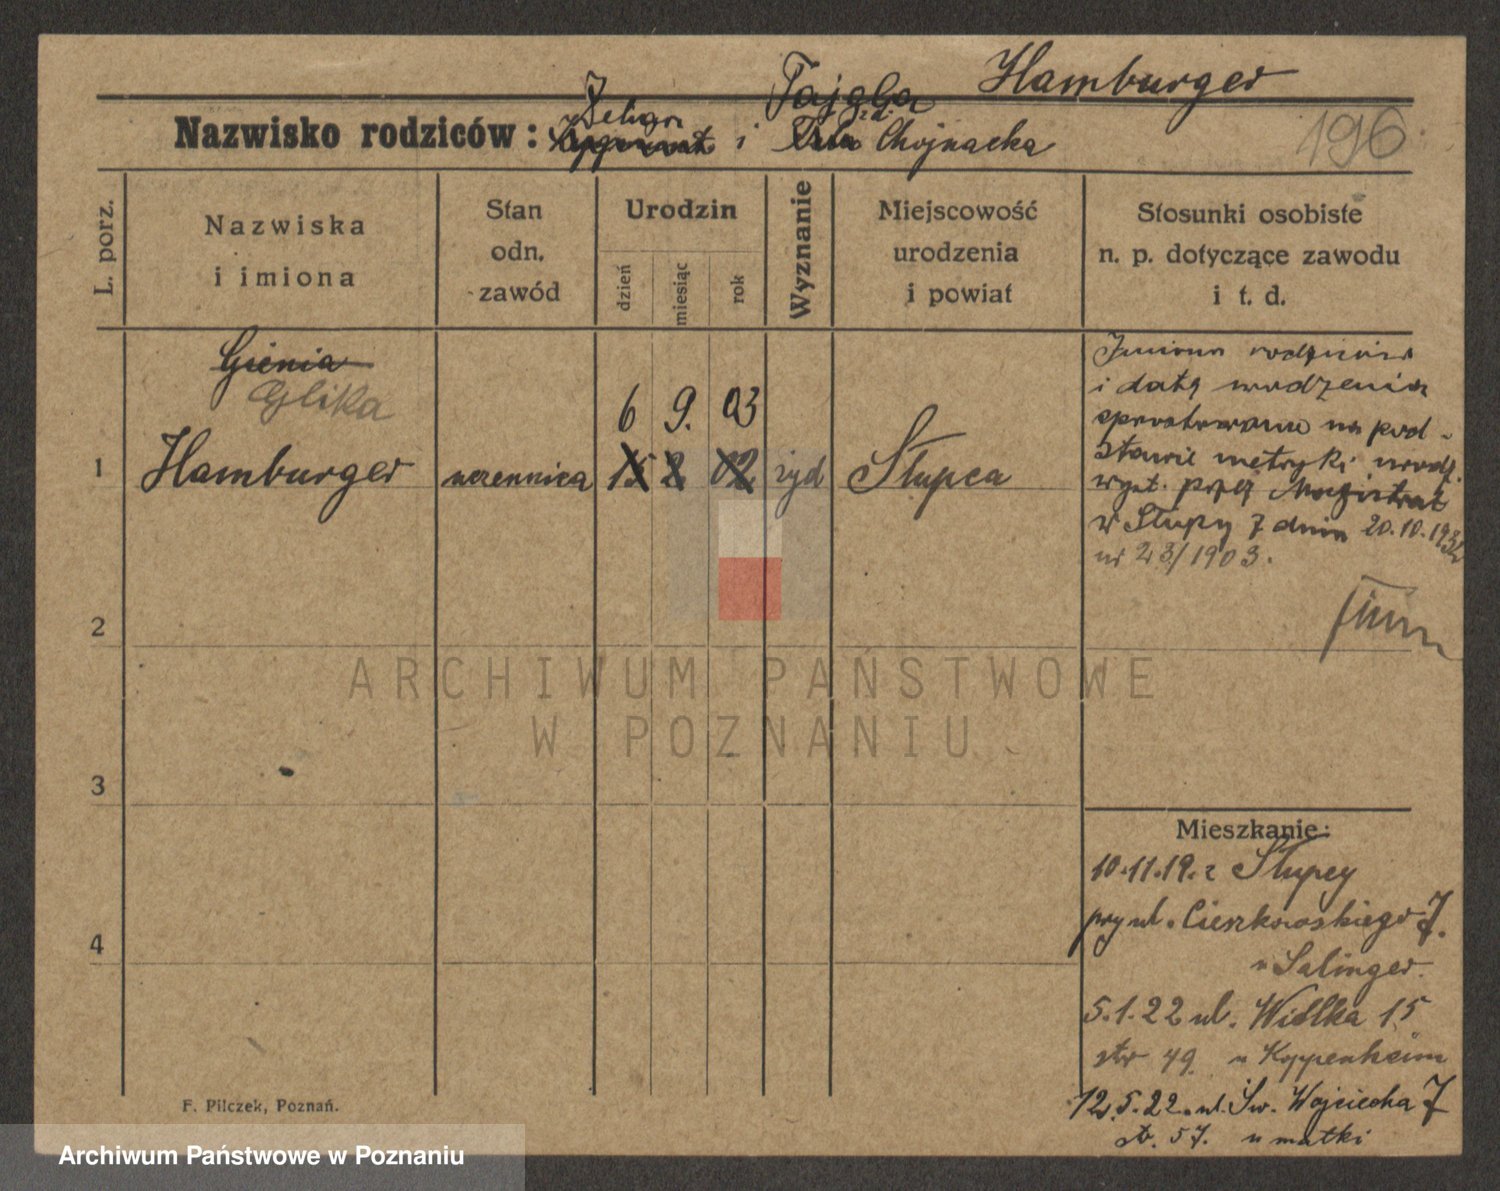 Hamburger
Tajgla
Nazwisko rodziców: i zd. Chojnacka
196
L. porz.
Nazwiska
i imiona
Stan
odn.
zawód
Urodzin
dzień
miesiąc
rok
Wyznanie
Miejscowość
urodzenia
i powiat
Stosunki osobiste
n. p. dotyczące zawodu
i t. d.
Gienia
Glika
6 9. 03
1 Hamburger uczennica 15 2 02 żyd Słupca
Imiona rodziców
i datę urodzenia
sprostowano na pod-
stawie metryki urodz.
wyst. przez Magistrat
w Słupcy z dnia 20.10.1932
nr 23/1903.
2
3
4
ARCHIWUM PAŃSTWOWE
W POZNANIU
Mieszkanie:
10.11.19. z Słupcy
przy ul. Cieszkowskiego 7.
u Salinger.
5.1.22 ul. Wielka 15
str 49. u Koppenheim
12.5.22. ul. Św. Wojciecha 7
str. 57. u matki
F. Pilczek, Poznań.
Archiwum Państwowe w Poznaniu